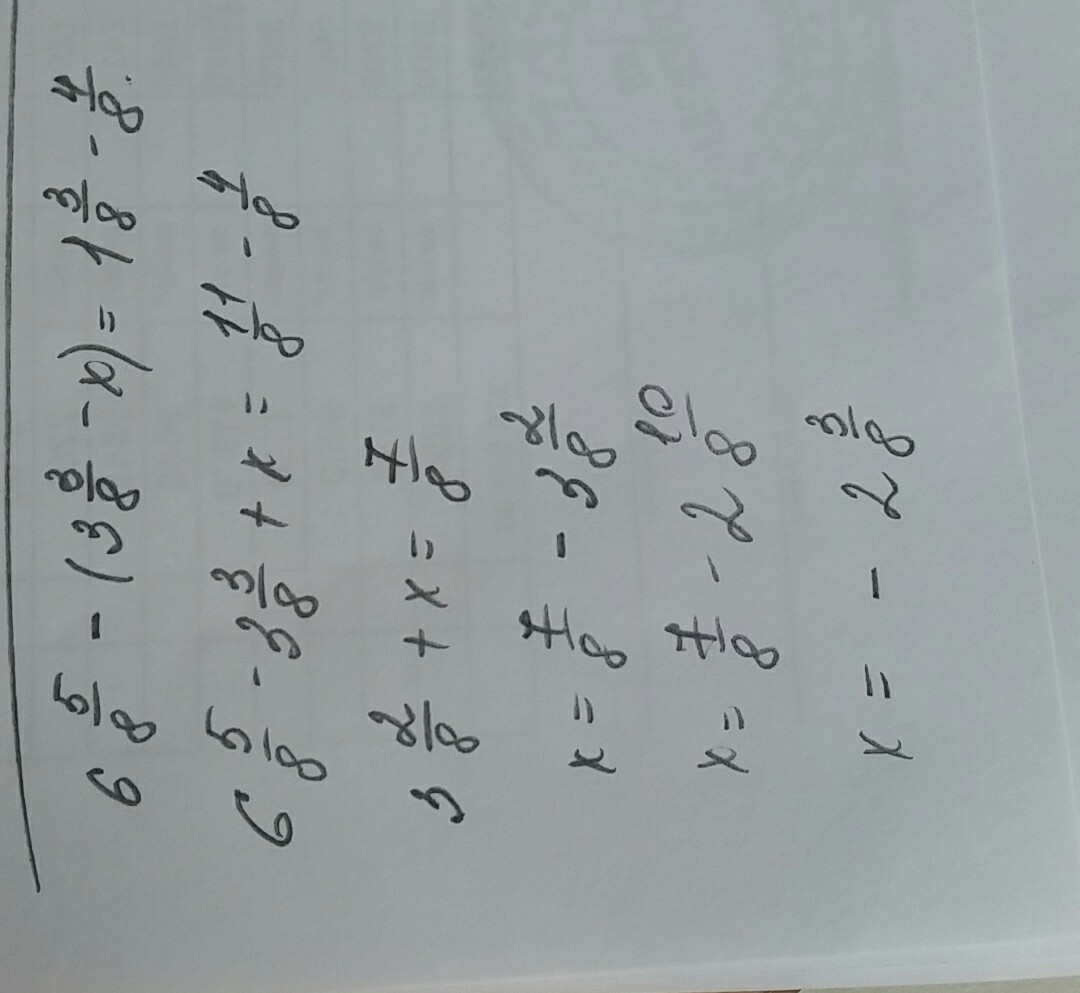 6 5/8 - (3 3/8 - x) = 1 3/8 - 4/8.
6 5/8 - 3 3/8 + x = 11/8 - 4/8
3 2/8 + x = 7/8
x = 7/8 - 3 2/8
x = 7/8 - 2 10/8
x = - 2 3/8